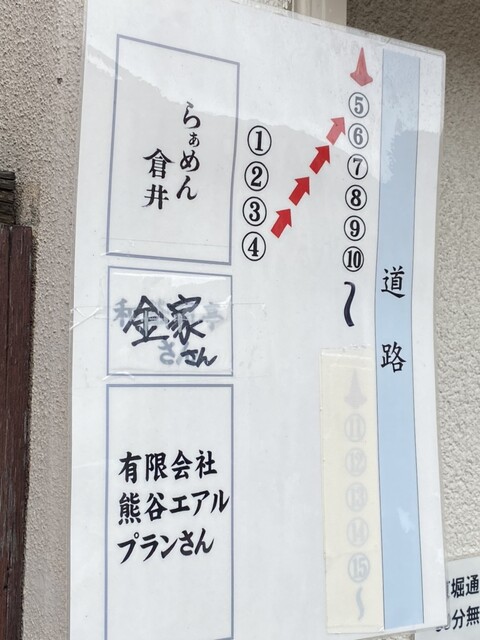 らぁめん
倉井
①
②
③
④
⑤
⑥
⑦
⑧
⑨
⑩
〜
道路
金家
さん
有限会社
熊谷エアル
プランさん
⑪
⑫
⑬
⑭
⑮
〜
堀通
分無